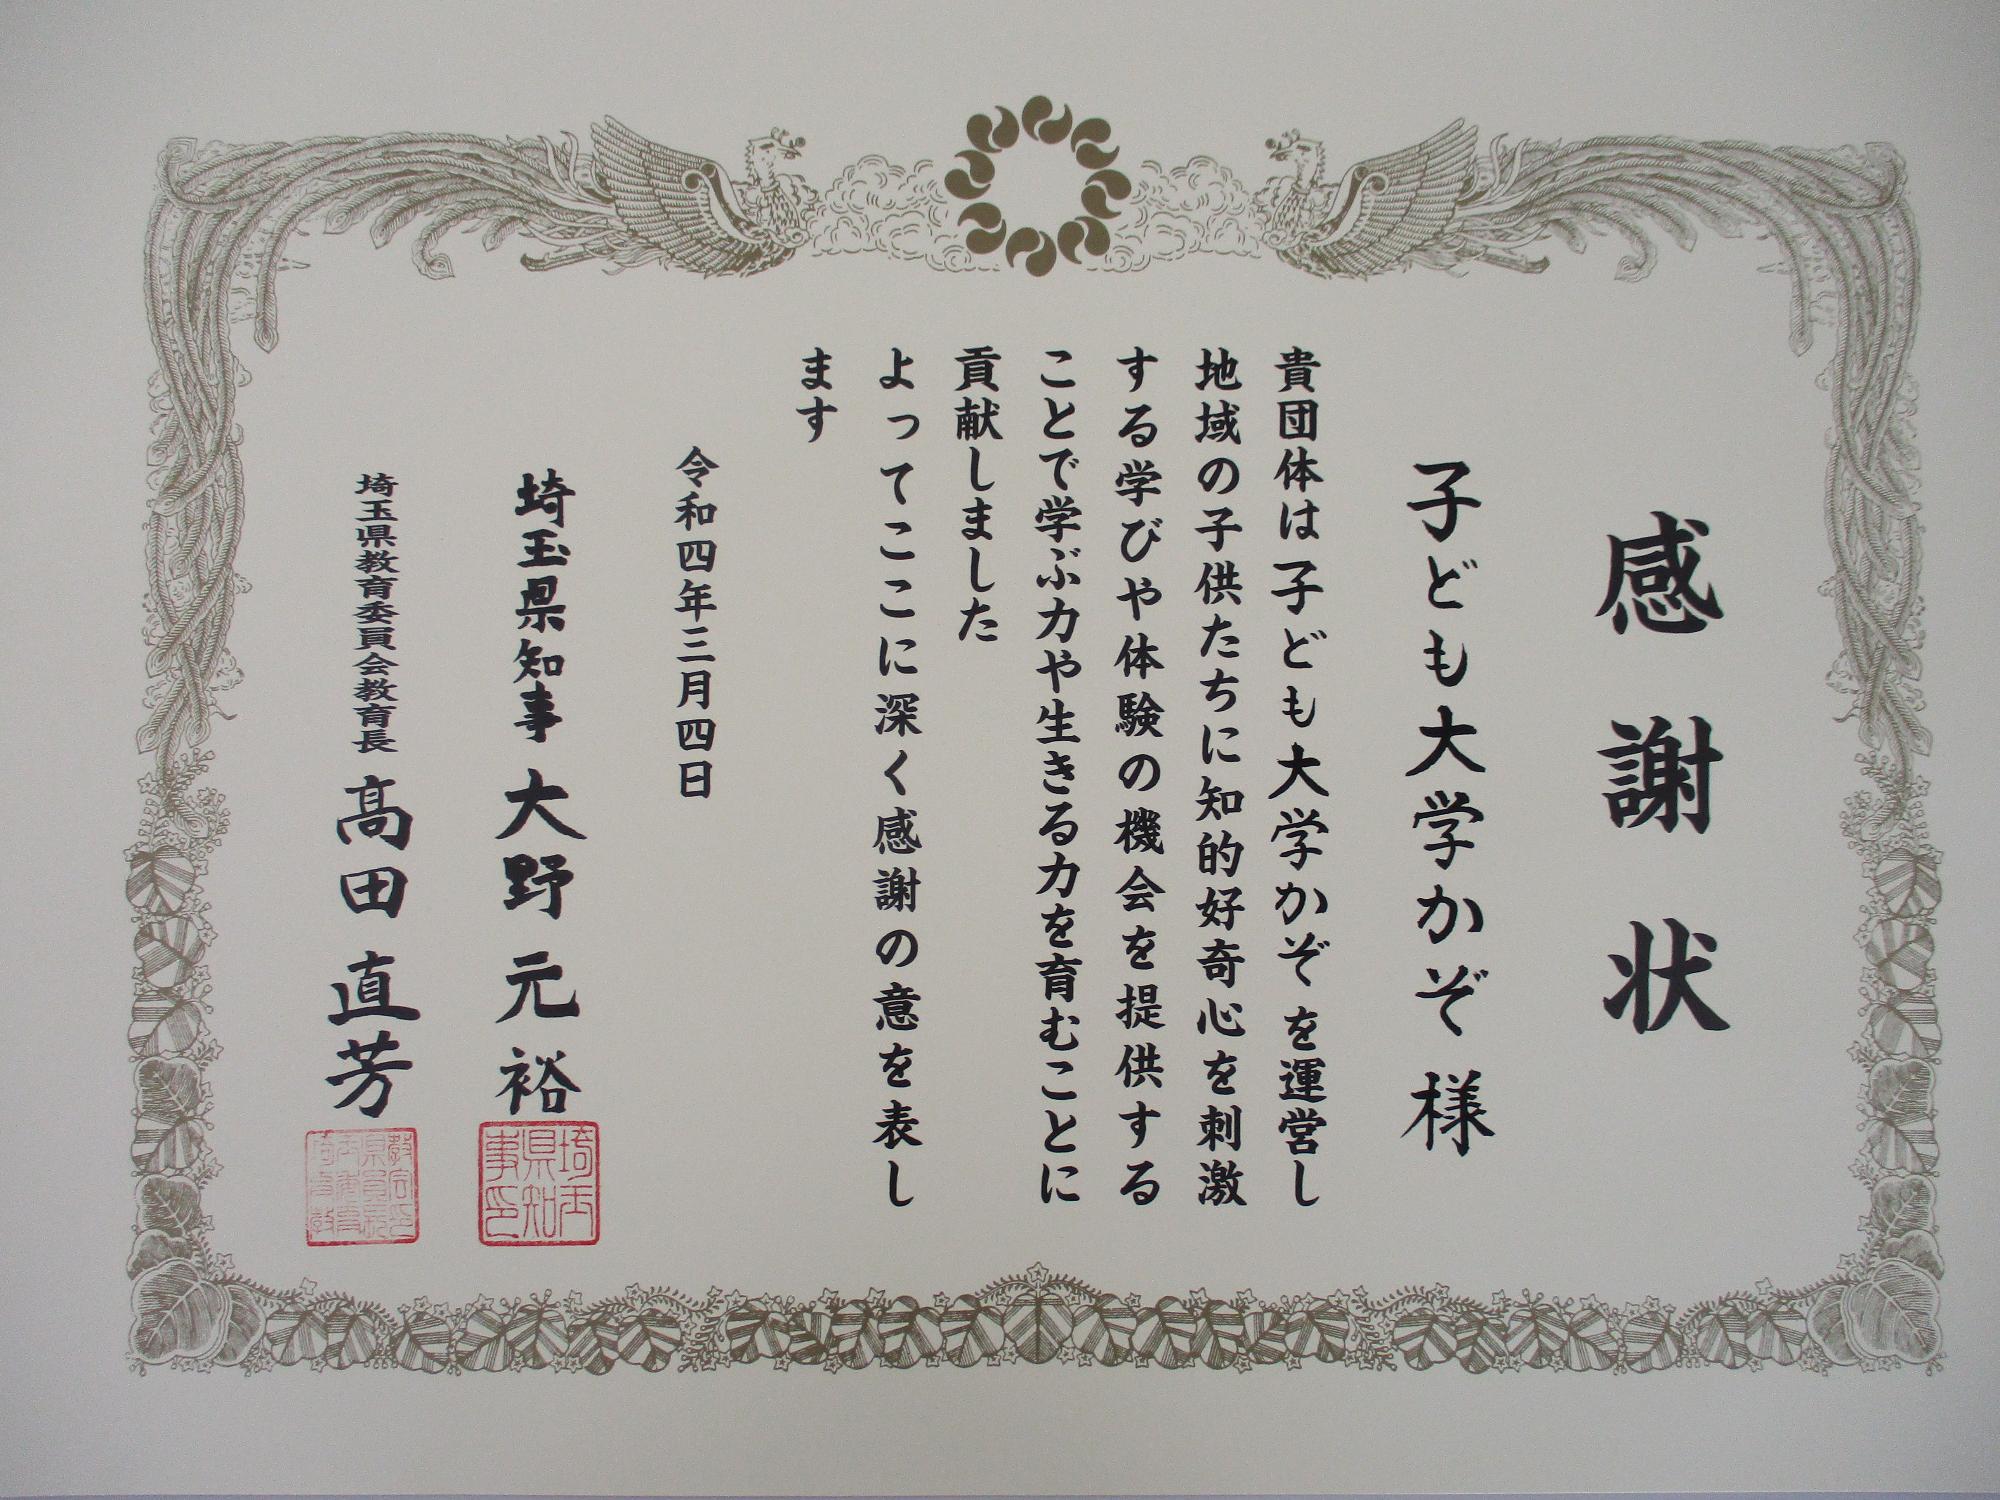 感謝状
子ども大学かぞ様
貴団体は子ども大学かぞを運営し
地域の子供たちに知的好奇心を刺激
する学びや体験の機会を提供する
ことで学ぶ力や生きる力を育むことに
貢献しました
よってここに深く感謝の意を表し
ます
令和四年三月四日
埼玉県知事 大野元裕
埼玉県知事印
埼玉県教育委員会教育長 髙田直芳